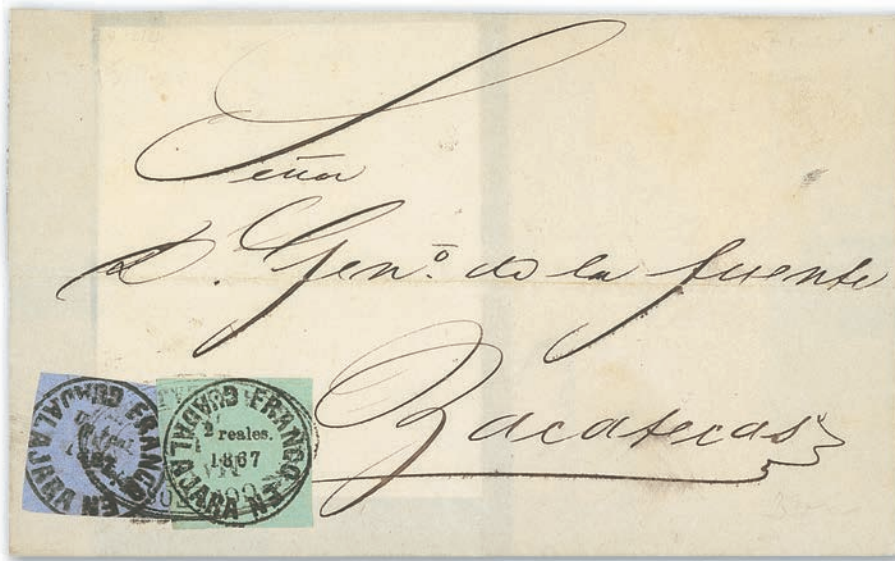 Señor
D. Gen.º de la fuente
Zacatecas
FRANCO EN GUADALAJARA
FRANCO EN GUADALAJARA
2 reales.
1867